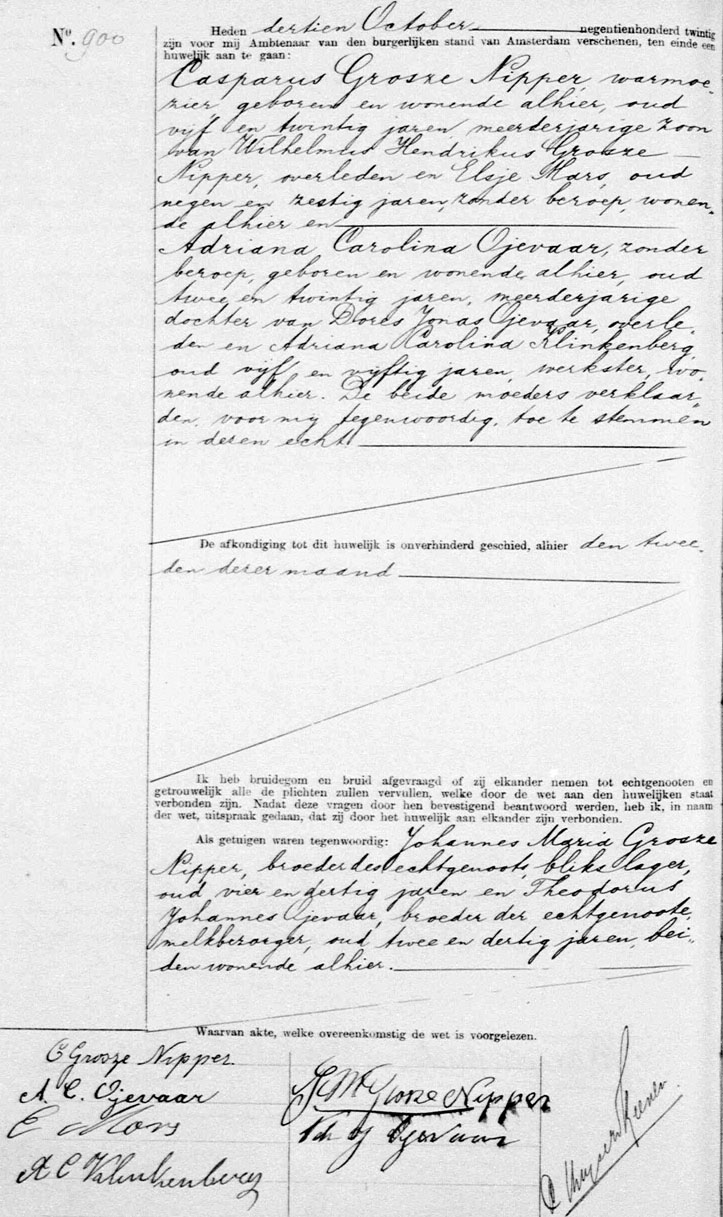 No. 900
Heden dertien October negentienhonderd twintig
zijn voor mij Ambtenaar van den burgerlijken stand van Amsterdam verschenen, ten einde een
huwelijk aan te gaan:
Casparus Grosze Nipper, warmoe-
zier, geboren en wonende alhier, oud
vijf en twintig jaren, meerderjarige zoon
van Wilhelmus Hendrikus Grosze
Nipper, overleden en Elsje Mars, oud
negen en zestig jaren, zonder beroep, wonen-
de alhier en
Adriana Carolina Ojevaar, zonder
beroep, geboren en wonende alhier, oud
twee en twintig jaren, meerderjarige
dochter van Dores Jonas Ojevaar, overle-
den en Adriana Carolina Klinkenberg,
oud vijf en vijftig jaren, werkster, wo-
nende alhier. De beide moeders verklaar-
den, voor mij tegenwoordig, toe te stemmen
in deren echt.
De afkondiging tot dit huwelijk is onverhinderd geschied, alhier den twee-
den dezer maand
Ik heb bruidegom en bruid afgevraagd of zij elkander nemen tot echtgenooten en
getrouwelijk alle de plichten zullen vervullen, welke door de wet aan den huwelijken staat
verbonden zijn. Nadat deze vragen door hen bevestigend beantwoord werden, heb ik, in naam
der wet, uitspraak gedaan, dat zij door het huwelijk aan elkander zijn verbonden.
Als getuigen waren tegenwoordig: Johannes Maria Grosze
Nipper, broeder des echtgenoots, blikslager,
oud vier en dertig jaren en Theodorus
Johannes Ojevaar, broeder der echtgenoote,
melkbezorger, oud twee en dertig jaren, bei-
den wonende alhier.
Waarvan akte, welke overeenkomstig de wet is voorgelezen.
C Grosze Nipper.
A. C. Ojevaar
E Mars
A C Klinkenberg
J M Grosze Nipper
Th J Ojevaar